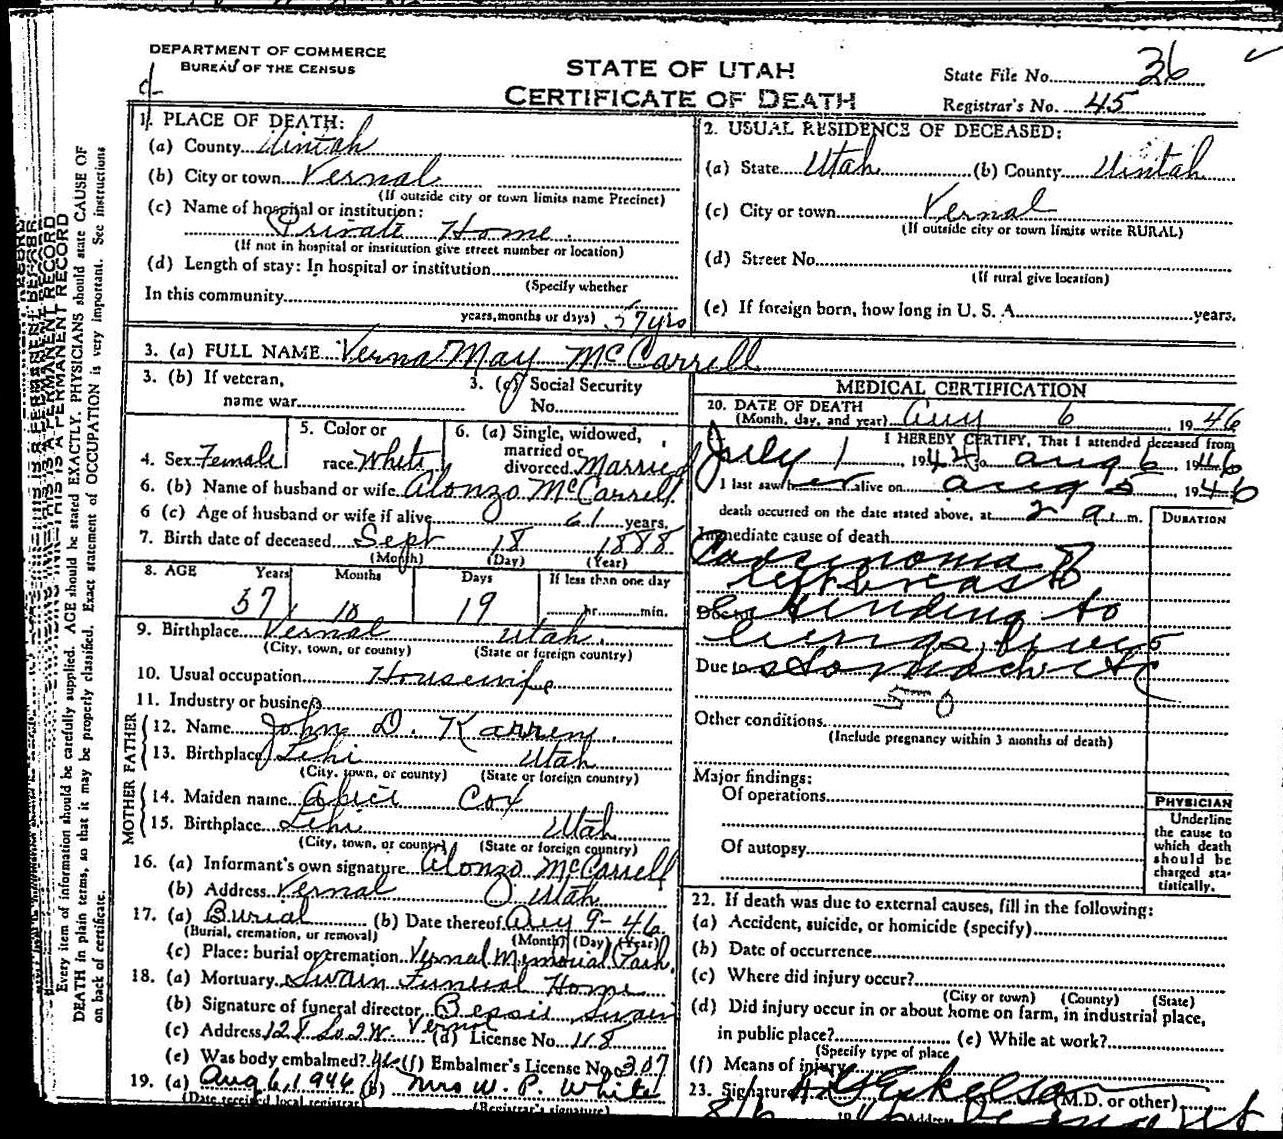 DEPARTMENT OF COMMERCE
BUREAU OF THE CENSUS
STATE OF UTAH
CERTIFICATE OF DEATH
State File No. 36
Registrar's No. 45
1. PLACE OF DEATH:
(a) County Uintah
(b) City or town Vernal
(If outside city or town limits name Precinct)
(c) Name of hospital or institution:
Private Home
(If not in hospital or institution give street number or location)
(d) Length of stay: In hospital or institution
(Specify whether
In this community
years, months or days) 57 yrs
2. USUAL RESIDENCE OF DECEASED:
(a) State Utah (b) County Uintah
(c) City or town Vernal
(If outside city or town limits write RURAL)
(d) Street No.
(If rural give location)
(e) If foreign born, how long in U. S. A. years.
3. (a) FULL NAME Verna May McCarrell
3. (b) If veteran,
name war
3. (c) Social Security
No.
4. Sex Female
5. Color or
race White
6. (a) Single, widowed,
married or
divorced Married
6. (b) Name of husband or wife Alonzo McCarrell
6 (c) Age of husband or wife if alive 61 years.
7. Birth date of deceased Sept 18 1888
(Month) (Day) (Year)
8. AGE Years Months Days If less than one day
57 10 19 hr. min.
9. Birthplace Vernal Utah.
(City, town, or county) (State or foreign country)
10. Usual occupation Housewife
11. Industry or business
FATHER
12. Name John D. Karren
13. Birthplace Lehi Utah
(City, town, or county) (State or foreign country)
MOTHER
14. Maiden name Alice Cox
15. Birthplace Lehi Utah
(City, town, or county) (State or foreign country)
16. (a) Informant's own signature Alonzo McCarrell
(b) Address Vernal Utah
17. (a) Burial (b) Date thereof Aug 9-46
(Burial, cremation, or removal) (Month) (Day) (Year)
(c) Place: burial or cremation Vernal Memorial Park.
18. (a) Mortuary Swain Funeral Home
(b) Signature of funeral director Bessie Swain
(c) Address Vernal (d) License No. 118
(e) Was body embalmed? (f) Embalmer's License No. 307
19. (a) Aug 6, 1946 (b) Mrs W. P. White
(Date received local registrar) (Registrar's signature)
MEDICAL CERTIFICATION
20. DATE OF DEATH
(Month, day, and year) Aug 6 1946
I HEREBY CERTIFY, That I attended deceased from
July 1 1944 to Aug 6 1946
I last saw her alive on Aug 5 1946
death occurred on the date stated above, at 2 a. m.
DURATION
Immediate cause of death
Carcinoma of
left breast
extending to
lungs, liver
Due to stomach etc
50
Other conditions
(Include pregnancy within 3 months of death)
Major findings:
Of operations
Of autopsy
PHYSICIAN
Underline
the cause to
which death
should be
charged sta-
tistically.
22. If death was due to external causes, fill in the following:
(a) Accident, suicide, or homicide (specify)
(b) Date of occurrence
(c) Where did injury occur?
(City or town) (County) (State)
(d) Did injury occur in or about home on farm, in industrial place,
in public place? (e) While at work?
(Specify type of place
(f) Means of injury
23. Signature Eskelson (M.D. or other)
Address
THIS IS A PERMANENT RECORD
Every item of information should be carefully supplied. AGE should be stated EXACTLY. PHYSICIANS should state CAUSE OF
DEATH in plain terms, so that it may be properly classified. Exact statement of OCCUPATION is very important. See instructions
on back of certificate.